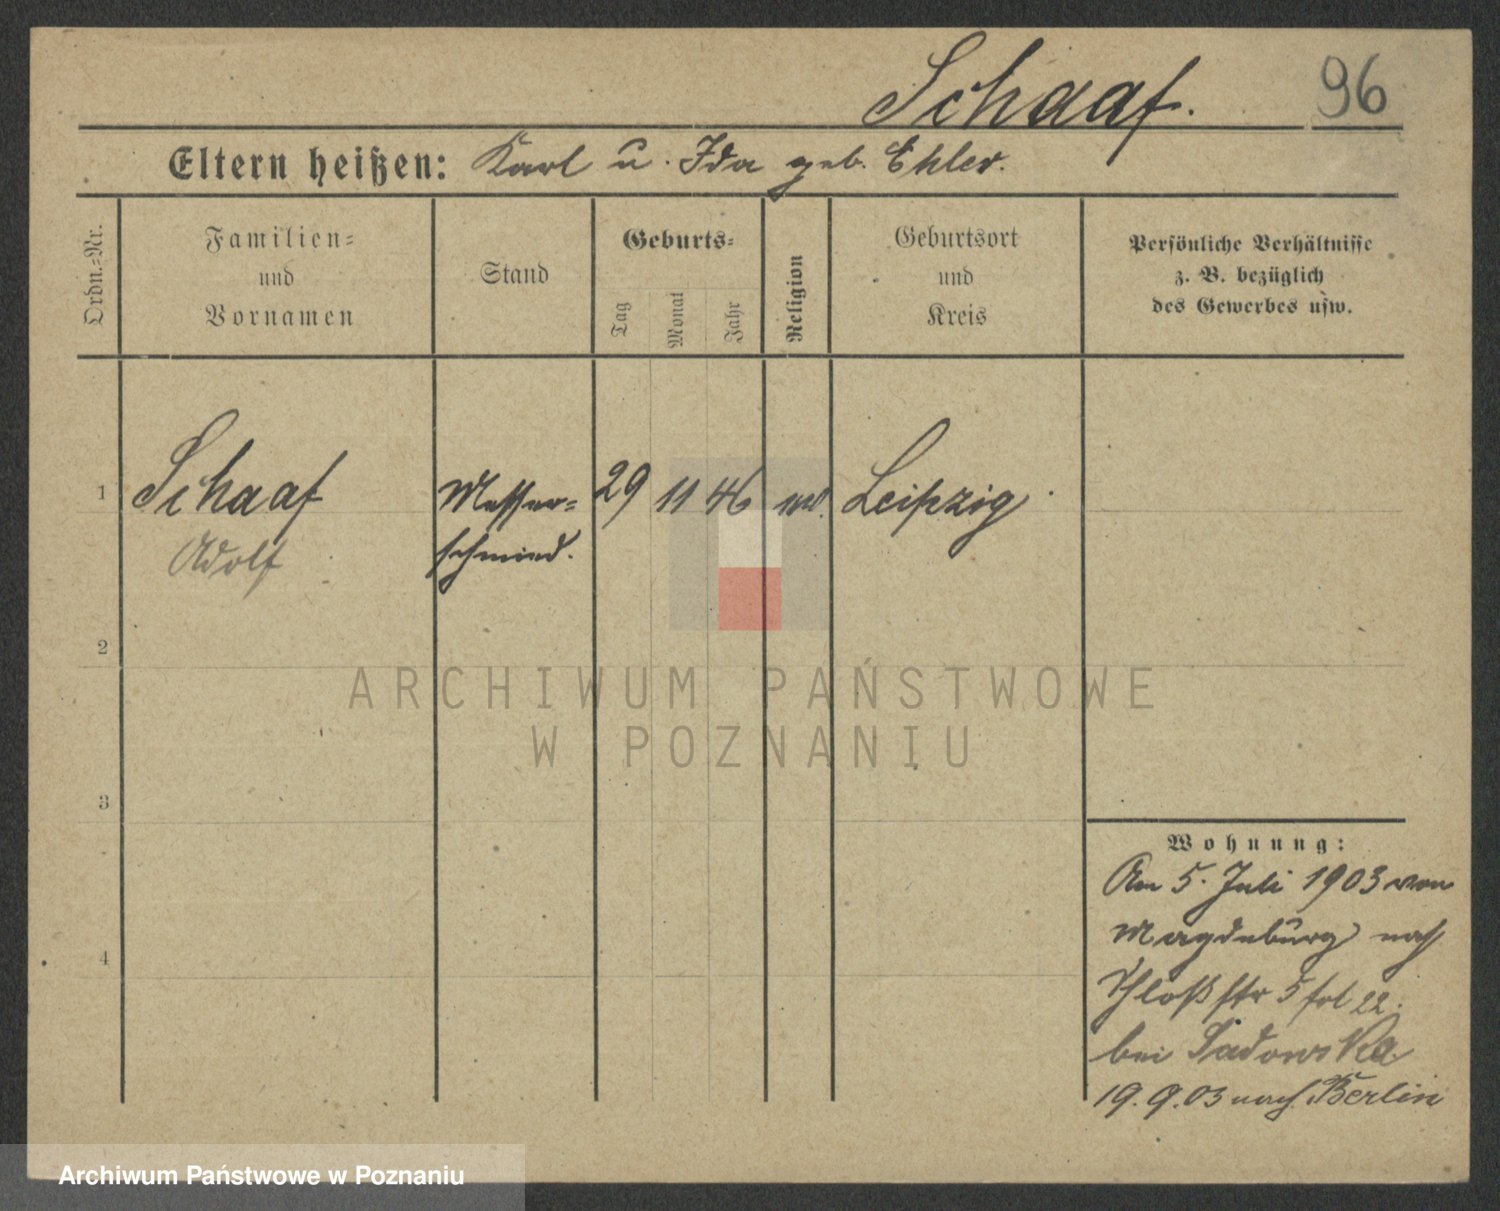 Schaaf.
96
Eltern heißen: Karl u. Ida geb. Ehler.
Ordn.-Nr.
Familien-
und
Vornamen
Stand
Geburts-
Tag
Monat
Jahr
Religion
Geburtsort
und
Kreis
Persönliche Verhältnisse
z. B. bezüglich
des Gewerbes usw.
1 Schaaf Messer- 29 11 46 Leipzig
Adolf schmied.
2
ARCHIWUM PAŃSTWOWE
W POZNANIU
3
4
Wohnung:
Am 5. Juli 1903 von
Magdeburg nach
Schloßstr 5 fol 22.
bei Sadowska
19.9.03 nach Berlin
Archiwum Państwowe w Poznaniu